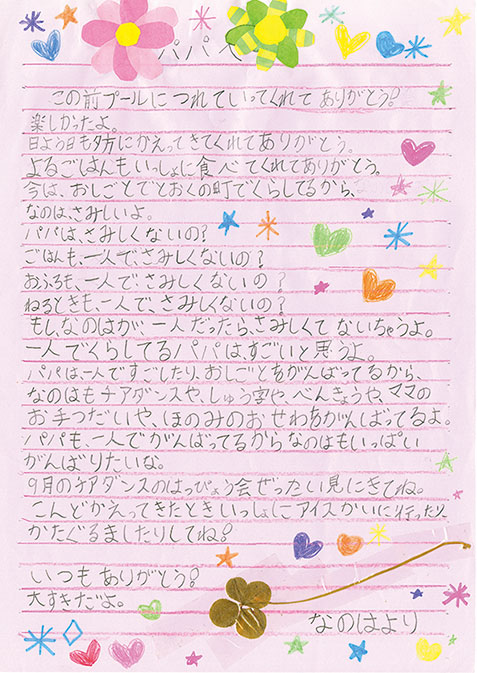 パパへ
この前プールにつれていってくれてありがとう!
楽しかったよ。
日よう日も夕方にかえってきてくれてありがとう。
よるごはんもいっしょに食べてくれてありがとう。
今は、おしごとでとおくの町でくらしてるから、
なのは、さみしいよ。
パパは、さみしくないの?
ごはんも、一人で、さみしくないの?
おふろも、一人で、さみしくないの?
ねるときも、一人で、さみしくないの?
もし、なのはが、一人だったら、さみしくてないちゃうよ。
一人でくらしてるパパは、すごいと思うよ。
パパは、一人ですごしたり、おしごとをがんばってるから、
なのはもチアダンスや、しゅう字や、べんきょうや、ママの
お手つだいや、ほのみのおせわをがんばってるよ。
パパも、一人でがんばってるからなのはもいっぱい
がんばりたいな。
9月のチアダンスのはっぴょう会ぜったい見にきてね。
こんどかえってきたときいっしょにアイスかいに行ったり
かたぐるましたりしてね!
いつもありがとう!
大すきだよ。
なのはより